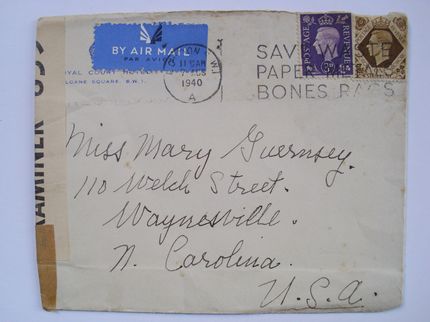 BY AIR MAIL
PAR AVION
ROYAL COURT HOTEL
SLOANE SQUARE, S.W.1.
1940
A
SAVE WASTE
PAPER
BONES RAGS
POSTAGE REVENUE
3D
EXAMINER
Miss Mary Guernsey.
110 Welch Street.
Waynesville.
N. Carolina.
U.S.A.